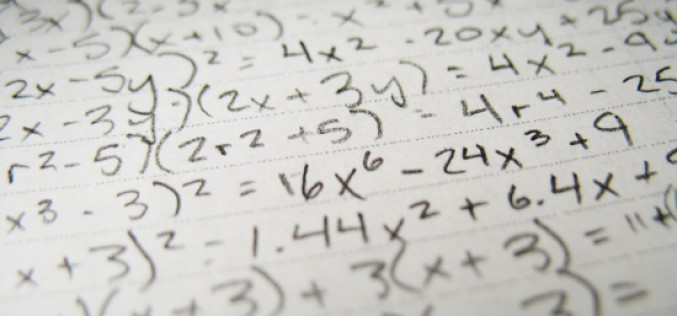 3x)(2-3x
x-5)(x+10) - x² + 5x
2x-5y)² = 4x² - 20xy + 25y
2x-3y)(2x+3y) = 4x² - 9y
r²-5)(2r²+5) - 4r⁴ - 25
x³-3)² = 16x⁶ - 24x³ + 9
x+3)² - 1.44x² + 6.4x + 9
+3) + 3(x+3) = 11+(
3) =